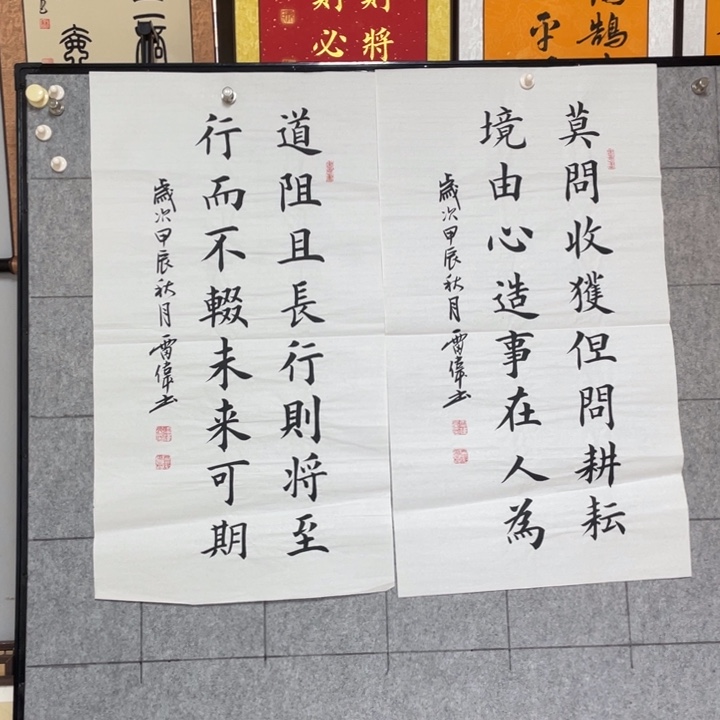 莫問收獲但問耕耘
境由心造事在人為
歲次甲辰秋月雷偉書
道阻且長行則将至
行而不輟未来可期
歲次甲辰秋月雷偉書
財將
財必
鵠
平